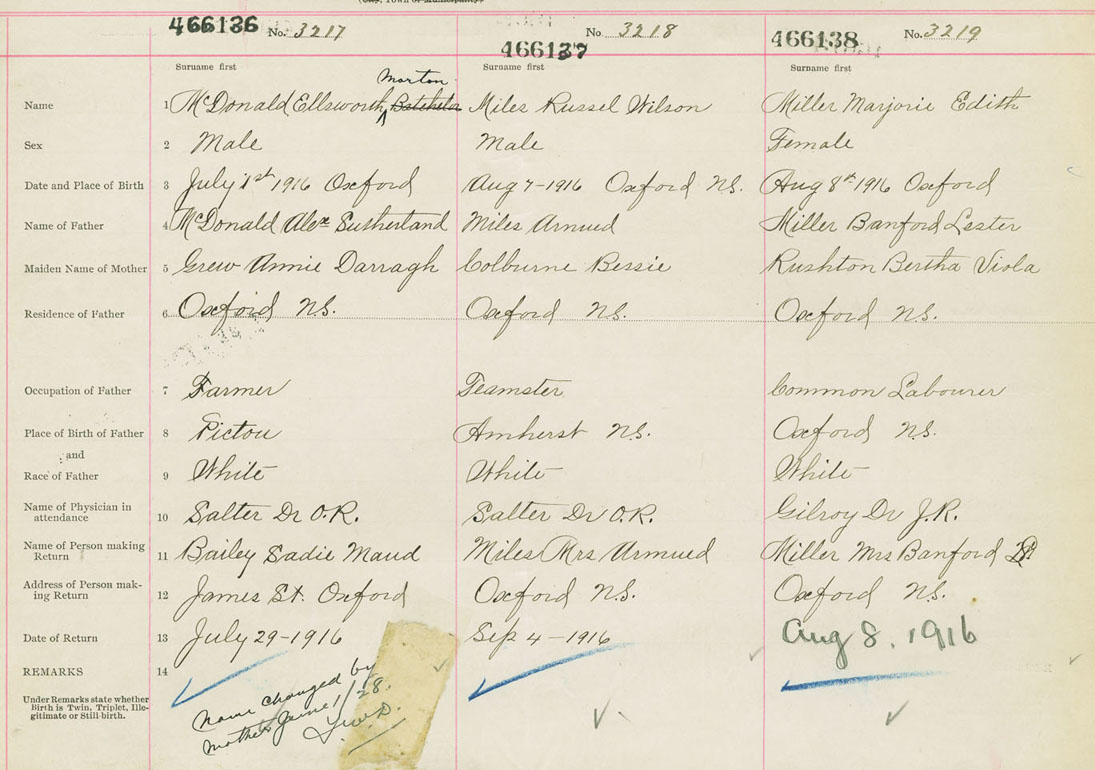 466136 No. 3217 No 3218 466138 No. 3219
466137
Surname first Surname first Surname first
Morton
Name 1 McDonald Ellsworth Batchelor Miles Russel Wilson Miller Marjorie Edith
Sex 2 Male Male Female
Date and Place of Birth 3 July 1st 1916 Oxford Aug 7-1916 Oxford N.S. Aug 8th 1916 Oxford
Name of Father 4 McDonald Alex Sutherland Miles Armued Miller Banford Lester
Maiden Name of Mother 5 Grew Annie Darragh Colburne Bessie Rushton Bertha Viola
Residence of Father 6 Oxford N.S. Oxford N.S. Oxford N.S.
Occupation of Father 7 Farmer Teamster Common Labourer
Place of Birth of Father 8 Pictou Amherst N.S. Oxford N.S.
and
Race of Father 9 White White White
Name of Physician in
attendance 10 Salter Dr O.R. Salter Dr O.R. Gilroy Dr J.R.
Name of Person making
Return 11 Bailey Sadie Maud Miles Mrs Armued Miller Mrs Banford
Address of Person mak-
ing Return 12 James St. Oxford Oxford N.S. Oxford N.S.
Date of Return 13 July 29-1916 Sep 4-1916 Aug 8, 1916
REMARKS 14
Under Remarks state whether
Birth is Twin, Triplet, Ille-
gitimate or Still-birth.
name changed by
mother June 1/28.